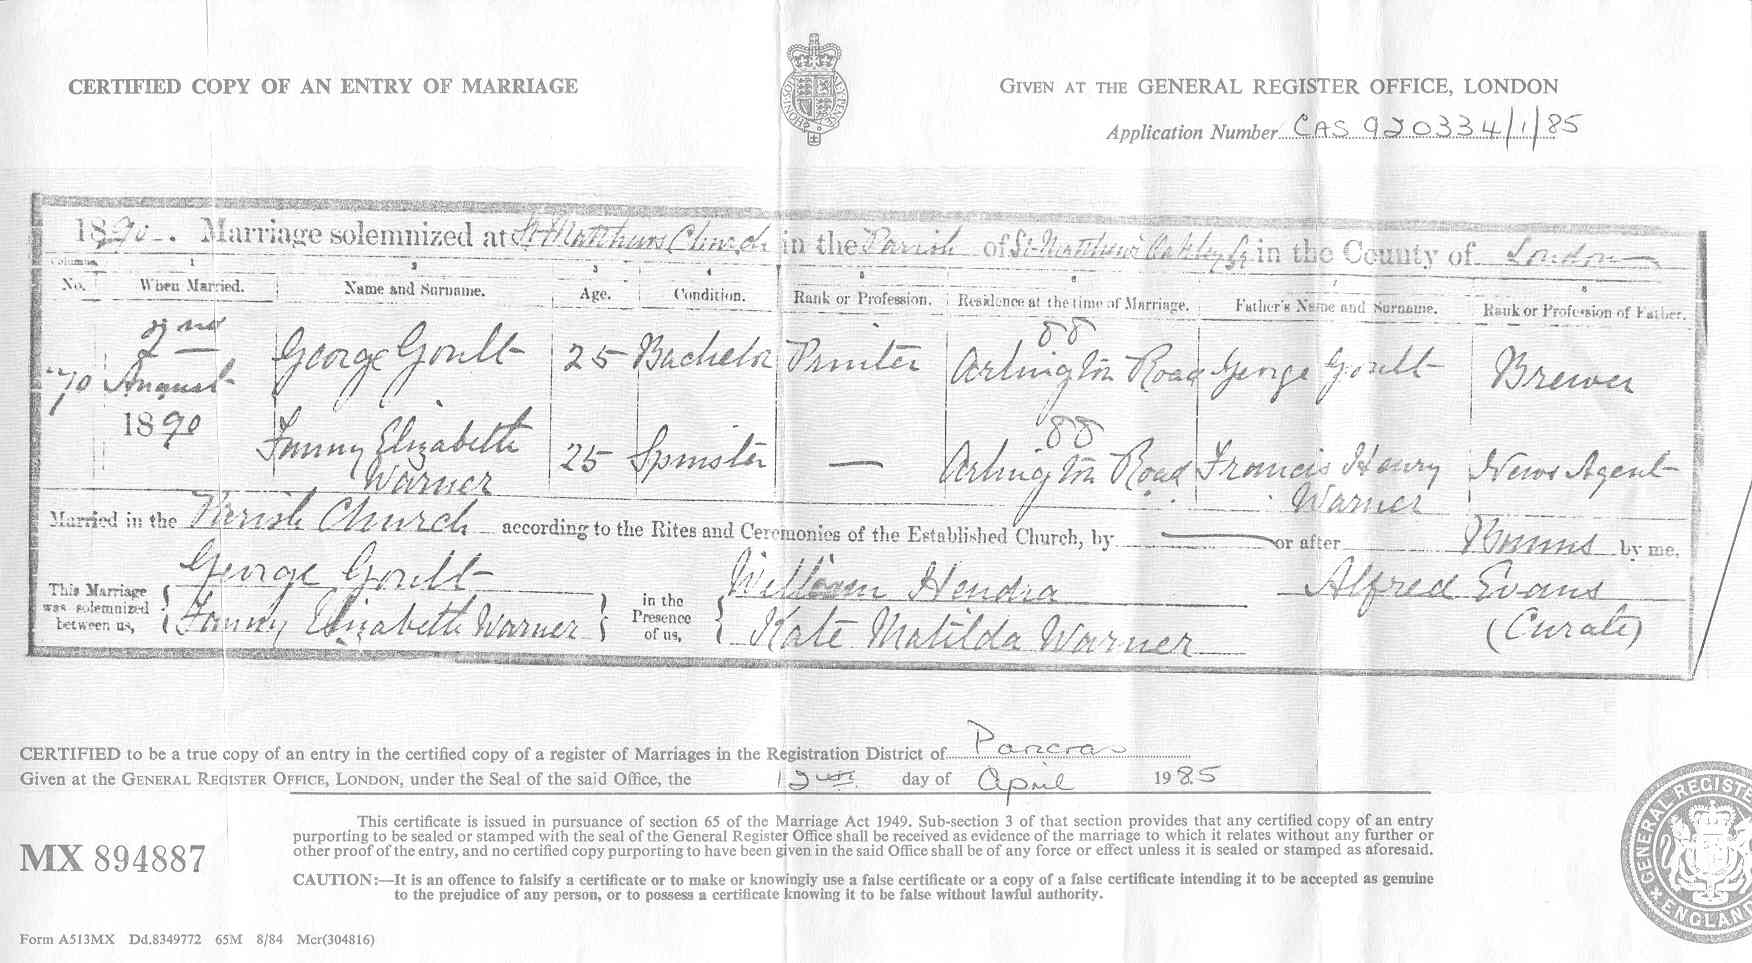 CERTIFIED COPY OF AN ENTRY OF MARRIAGE
GIVEN AT THE GENERAL REGISTER OFFICE, LONDON
Application Number CAS 920334/1/85
1890. Marriage solemnized at St Matthews Church in the Parish of St Matthew's Oakley Sq in the County of London
Columns. 1 2 3 4 5 6 7 8
No. When Married. Name and Surname. Age. Condition. Rank or Profession. Residence at the time of Marriage. Father's Name and Surname. Rank or Profession of Father.
2nd 88
70 August George Goult 25 Bachelor Printer Arlington Road George Goult Brewer
1890 88
Fanny Elizabeth 25 Spinster — Arlington Road Francis Henry News Agent
Warner Warner
Married in the Parish Church according to the Rites and Ceremonies of the Established Church, by — or after Banns by me,
This Marriage was solemnized between us, { George Goult
Fanny Elizabeth Warner } in the Presence of us, { William Hendra
Kate Matilda Warner
Alfred Evans
(Curate)
CERTIFIED to be a true copy of an entry in the certified copy of a register of Marriages in the Registration District of Pancras
Given at the GENERAL REGISTER OFFICE, LONDON, under the Seal of the said Office, the 12th day of April 1985
This certificate is issued in pursuance of section 65 of the Marriage Act 1949. Sub-section 3 of that section provides that any certified copy of an entry
purporting to be sealed or stamped with the seal of the General Register Office shall be received as evidence of the marriage to which it relates without any further or
other proof of the entry, and no certified copy purporting to have been given in the said Office shall be of any force or effect unless it is sealed or stamped as aforesaid.
MX 894887
CAUTION:—It is an offence to falsify a certificate or to make or knowingly use a false certificate or a copy of a false certificate intending it to be accepted as genuine
to the prejudice of any person, or to possess a certificate knowing it to be false without lawful authority.
GENERAL REGISTE
ENGLAND
Form A513MX Dd.8349772 65M 8/84 Mcr(304816)